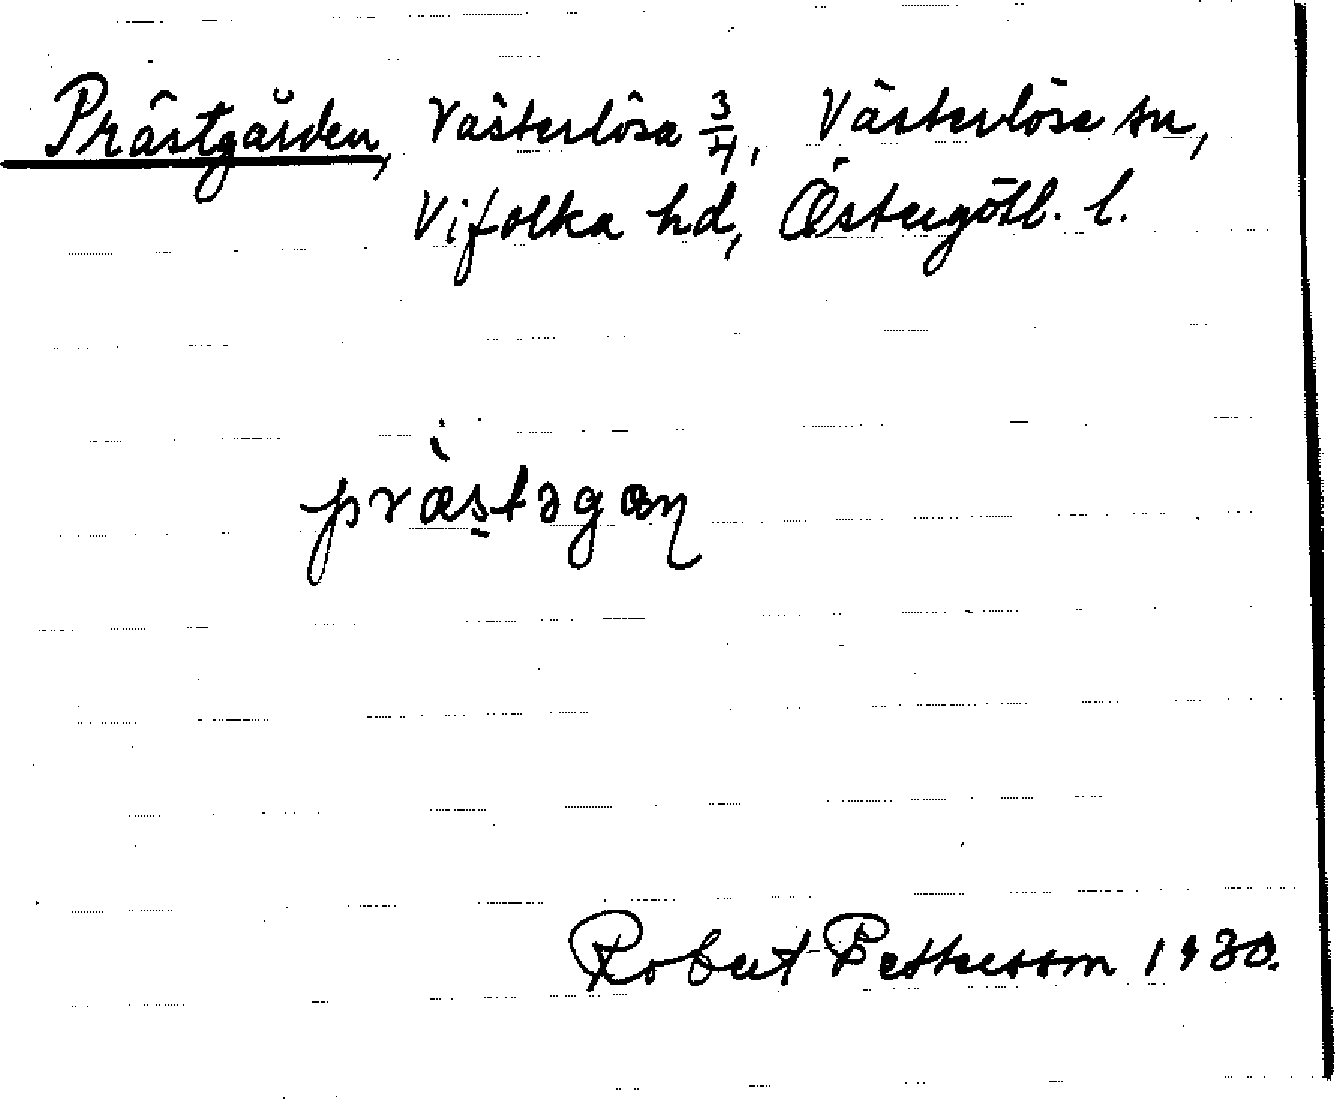 Prästgården, Västerlösa 3/4, Västerlösa sn,
Vifolka hd, Östergötl. l.
præ̀stəgan
Robert Pettersson 1930.